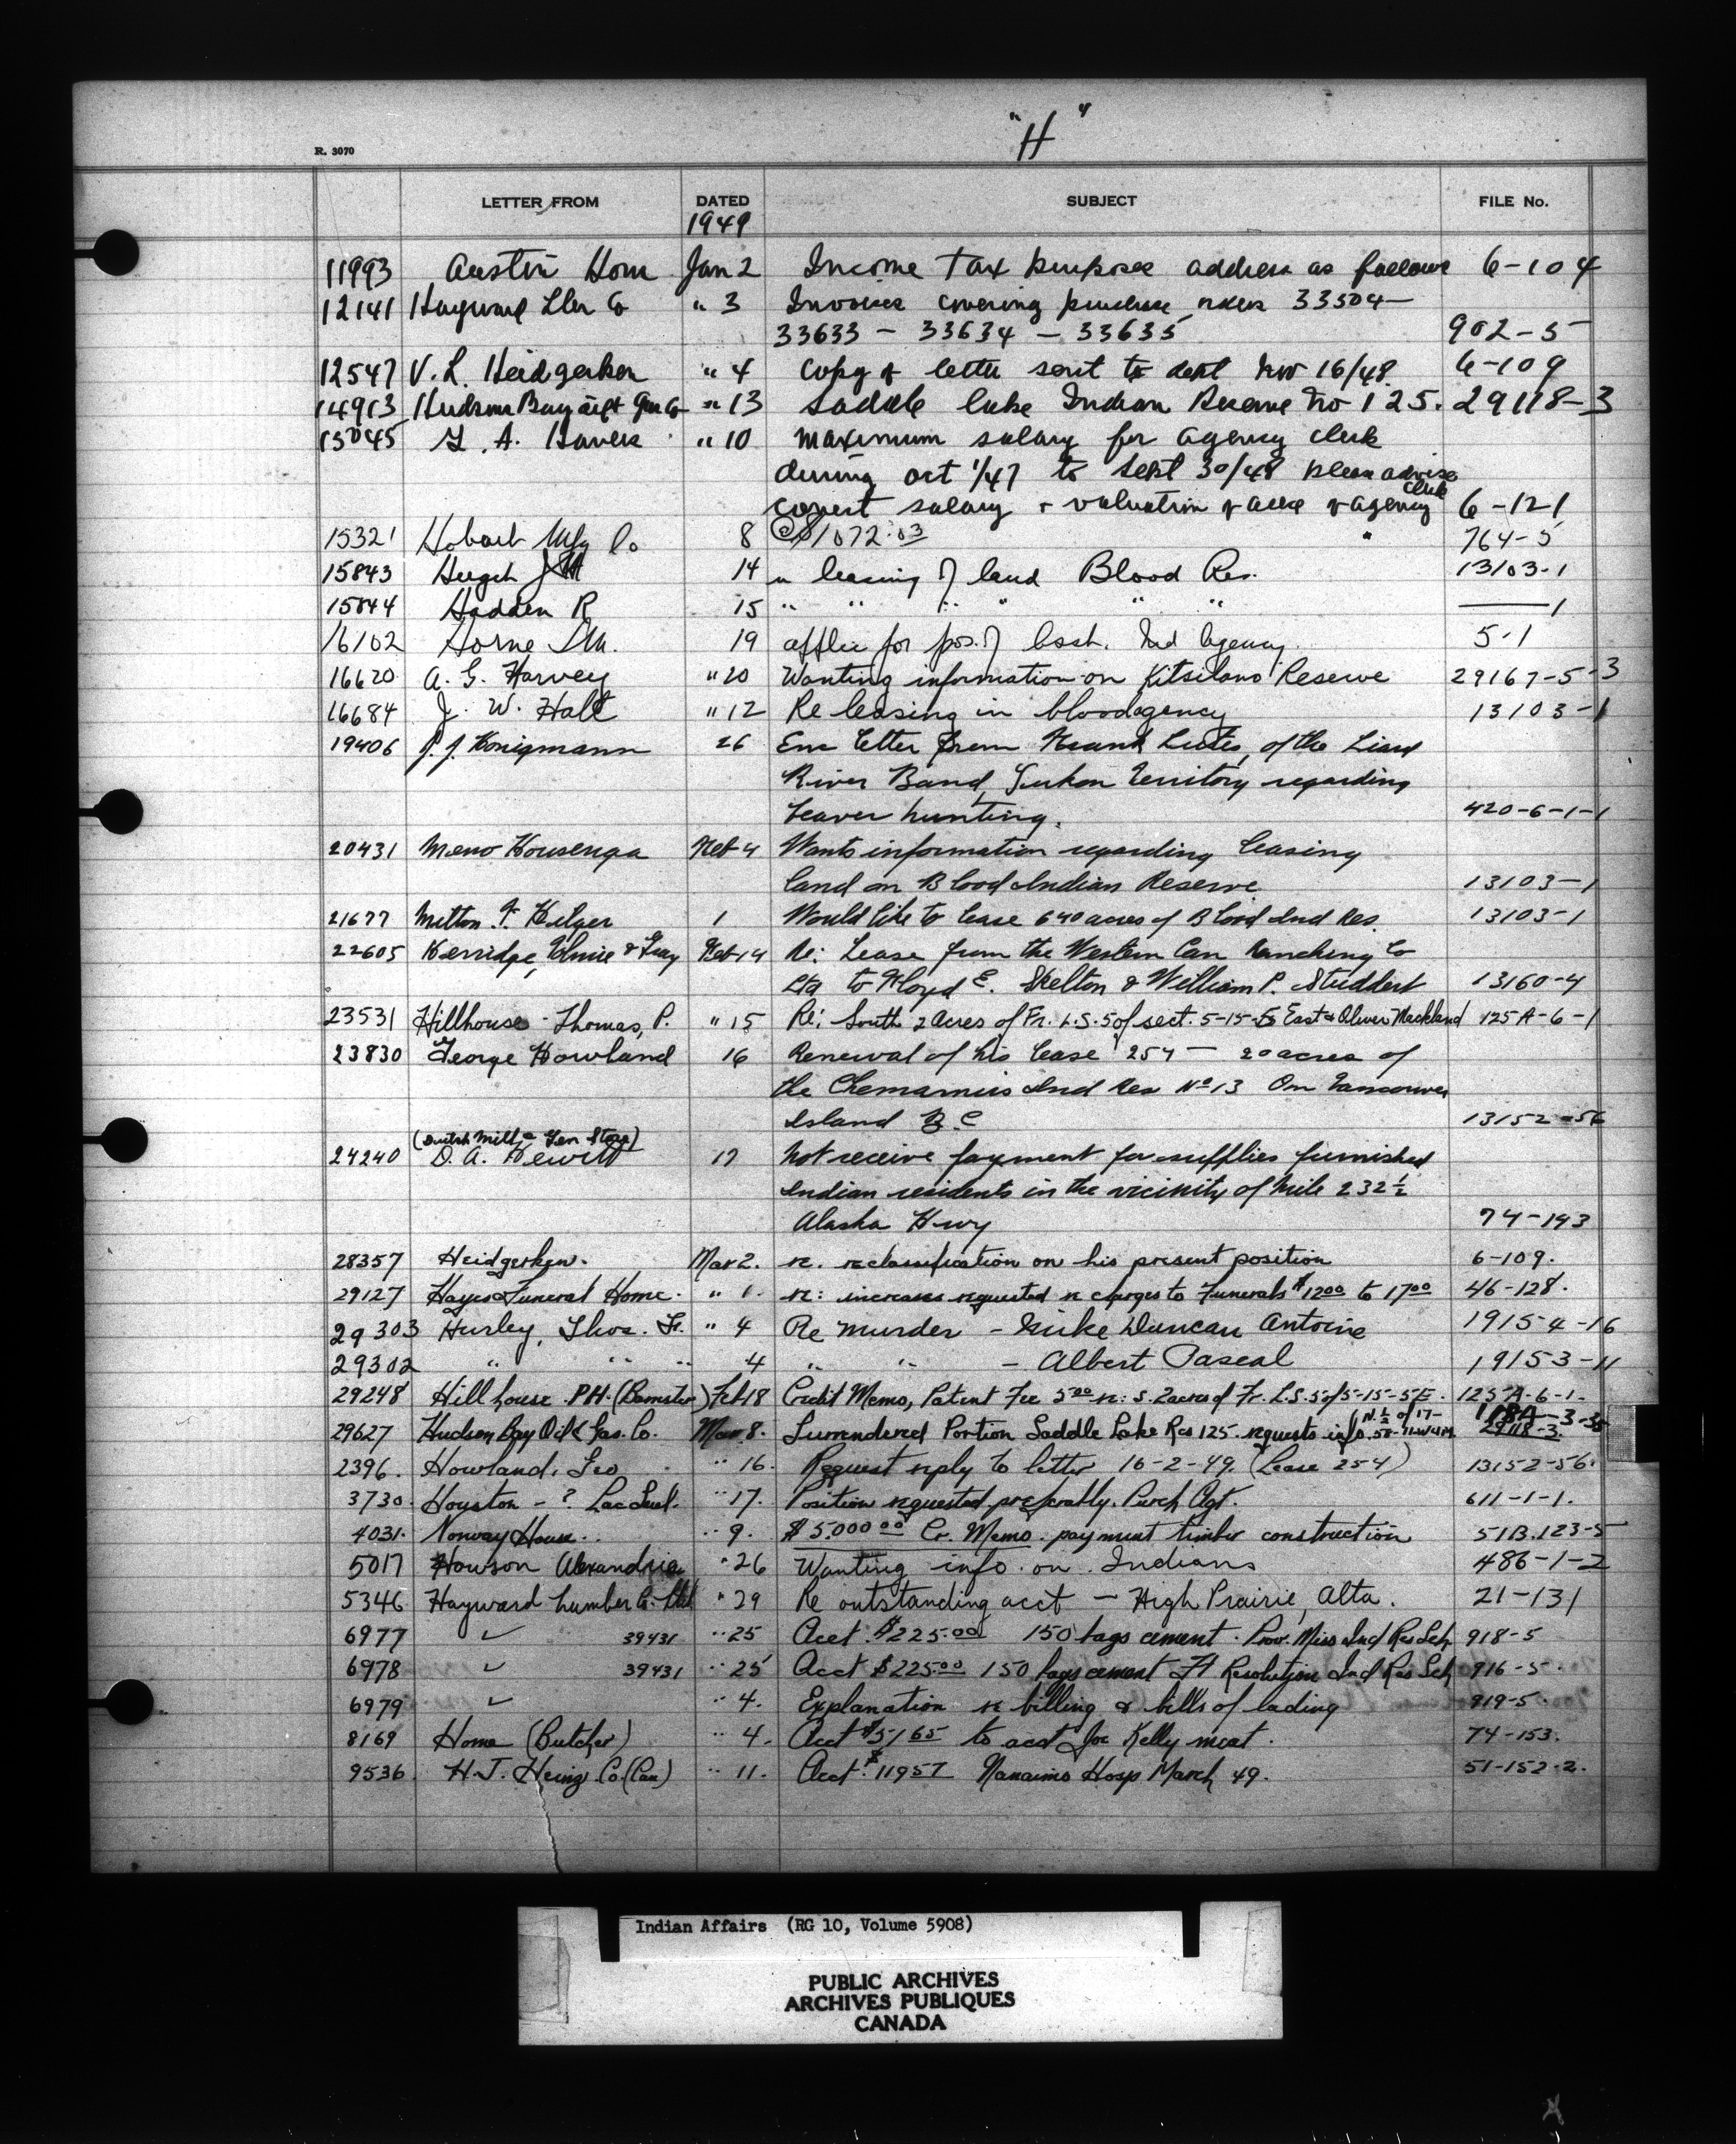 "H"
R. 3070
LETTER FROM DATED SUBJECT FILE No.
1949
11993 Austin Horn Jan 2 Income tax purpose address as follows 6-104
12141 Hayward Lbr Co " 3 Invoices covering purchase orders 33504-
33633 - 33634 - 33635 902-5
12547 V. L. Heidgerken " 4 Copy of letter sent to dept Nov 16/48 6-109
14913 Hudson Bay Oil & Gas Co " 13 Saddle Lake Indian Reserve No 125. 29118-3
13045 A. Haves " 10 Maximum salary for agency clerk
during Oct 1/47 to Sept 30/48 please advise
salary + valuation of agency clerk 6-121
15321 Hobart Mfg Co 8 @ $1072.03 764-5
15843 Heegch J M 14 leasing of land Blood Res. 13103-1
15844 Hadden R 15 " " " " " " ——1
16102 Horne 19 applic for pos. of Asst. Ind Agency. 5-1
16620 A. G. Harvey " 20 Wanting information on Kitsilano Reserve 29167-5-3
16684 J. W. Halt " 12 Re leasing in blood agency 13103-1
19406 J. J. Honigmann 26 Enc letter from Frank Lutes, of the Liard
River Band, Yukon Territory regarding
beaver hunting. 420-6-1-1
20431 Meno Housenga Feb 4 Wants information regarding leasing
land on Blood Indian Reserve 13103-1
21677 Milton F. Hilger 1 Would like to lease 640 acres of Blood Ind Res. 13103-1
22605 Herridge, Tolmie & Gray Feb 14 Re: Lease from the Western Can Ranching Co
Ltd to Floyd E. Skelton & William P. Studdert 13160-4
23531 Hillhouse - Thomas, P. " 15 Re: South 2 Acres of Fr. L.S. 5 of sect. 5-15-5 East & Oliver Mackland 125A-6-1
23830 George Howland 16 Renewal of his lease 254 - 20 acres of
the Chemainus Ind Res No 13 On Vancouver
Island B.C 13152-56
(Dutch Mill & Gen Store)
24240 D. A. Hewitt 17 Not receive payment for supplies furnished
Indian residents in the vicinity of Mile 232 1/2
Alaska Hwy 74-143
28357 Heidgerken. Mar 2. re. reclassification on his present position 6-109.
29127 Hayes Funeral Home. " 1. re: increases requested re charges to Funerals $12.00 to 17.00 46-128.
29303 Hurley, Thos. Fr. " 4 Re Murder - Mike Duncan Antoine 19154-16
29302 " " " 4 " " - Albert Pascal 19153-11
29248 Hillhouse P.H. (Barrister) Feb 18 Credit Memo, Patent Fee 5.00 re: S. 2 acres of Fr. L.S. 5 of 5-15-5E. 125-A-6-1.
(N. 1/2 of 17- 118A-3-35
29627 Hudson Bay Oil & Gas. Co. Mar 8. Surrendered Portion Saddle Lake Res 125. requests info. 58-11-W4M. 29118-3.
2396. Howland, Geo " 16. Request reply to letter 16-2-49. (Lease 254) 13152-56.
3730. Houston - ? Lac Seul. " 17. Position requested preferably. Purch Agt. 611-1-1.
4031. Norway House. " 9. $5,000.00 Cr. Memo. payment timber construction 51B.123-5
5017 Howson Alexandria " 26 Wanting info on Indians 486-1-2
5346 Hayward Lumber Co. Ltd " 29 Re outstanding acct - High Prairie, Alta. 21-131
6977 ✓ 39431 " 25 Acct. $225.00 150 bags cement. Prov. Miss Ind Res Sch 918-5
6978 ✓ 39431 " 25 Acct $225.00 150 bags cement Ft Resolution Ind Res Sch 916-5.
6979 ✓ " 4. Explanation re billing & bills of lading 919-5.
8169 Home (Butcher) " 4. Acct $51.65 to acct Joe Kelly meat. 74-153.
9536 H. J. Heinz Co. (Can) " 11. Acct. $119.57 Nanaimo Hosp March 49. 51-152-2.
Indian Affairs (RG 10, Volume 5908)
PUBLIC ARCHIVES
ARCHIVES PUBLIQUES
CANADA